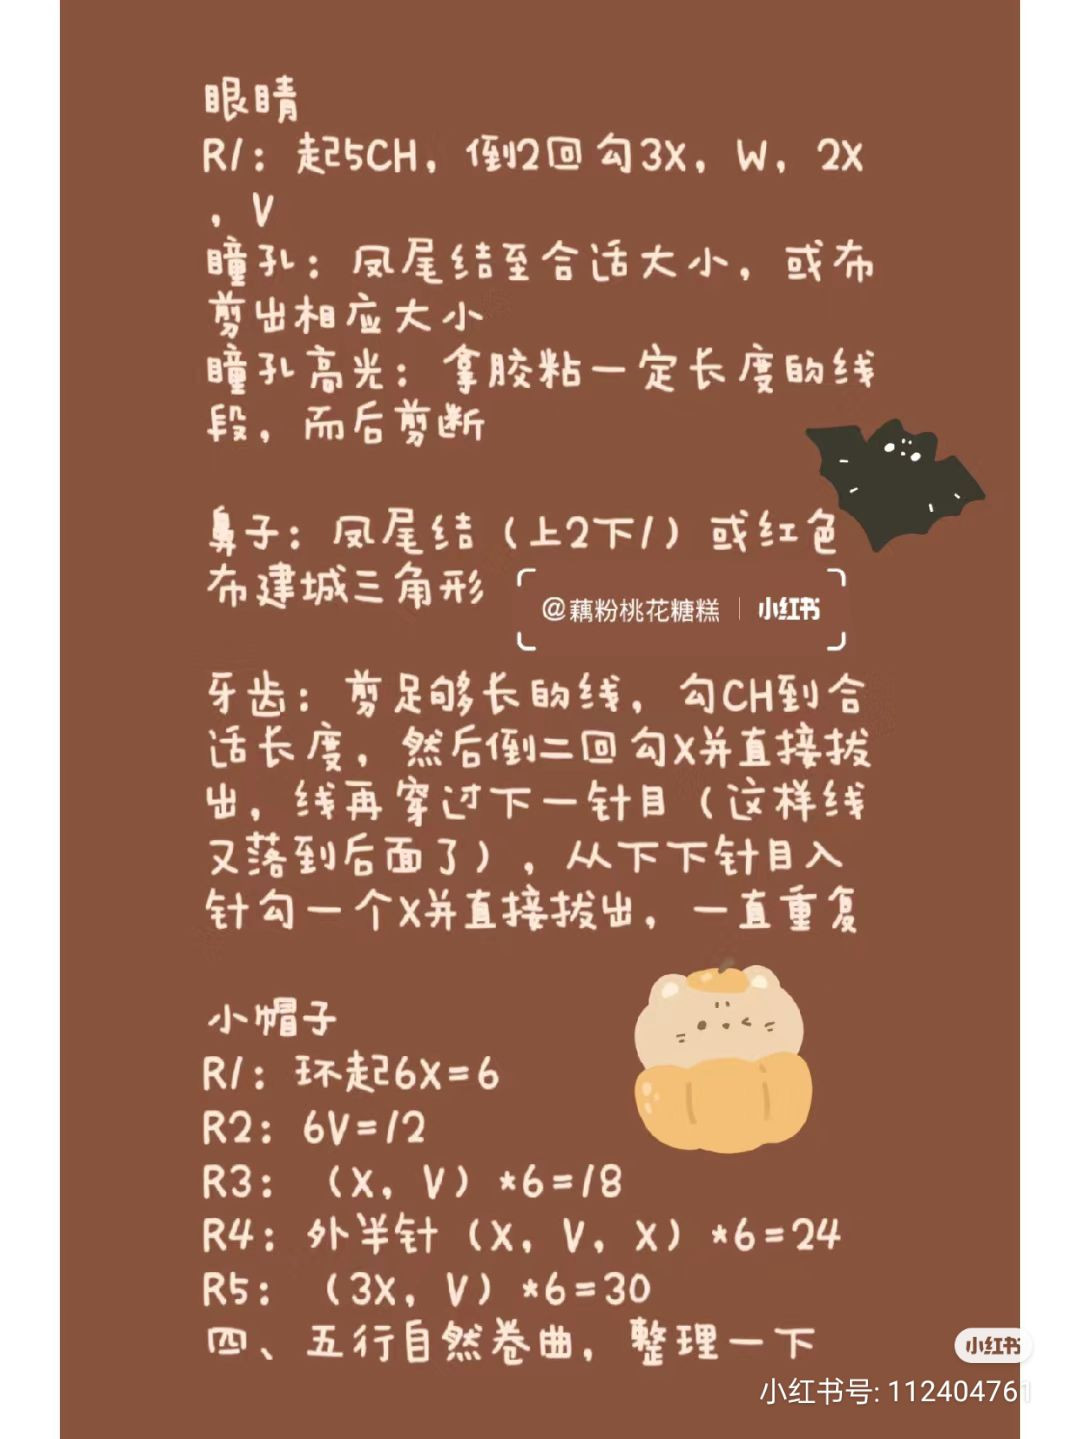 眼睛
R1：起5CH，倒2回勾3X，W，2X
，V
瞳孔：凤尾结至合适大小，或布
剪出相应大小
瞳孔高光：拿胶粘一定长度的线
段，而后剪断
鼻子：凤尾结（上2下1）或红色
布建城三角形
@藕粉桃花糖糕 | 小红书
牙齿：剪足够长的线，勾CH到合
适长度，然后倒二回勾X并直接拔
出，线再穿过下一针目（这样线
又落到后面了），从下下针目入
针勾一个X并直接拔出，一直重复
小帽子
R1：环起6X=6
R2：6V=12
R3：（X，V）*6=18
R4：外半针（X，V，X）*6=24
R5：（3X，V）*6=30
四、五行自然卷曲，整理一下
小红书
小红书号: 112404761